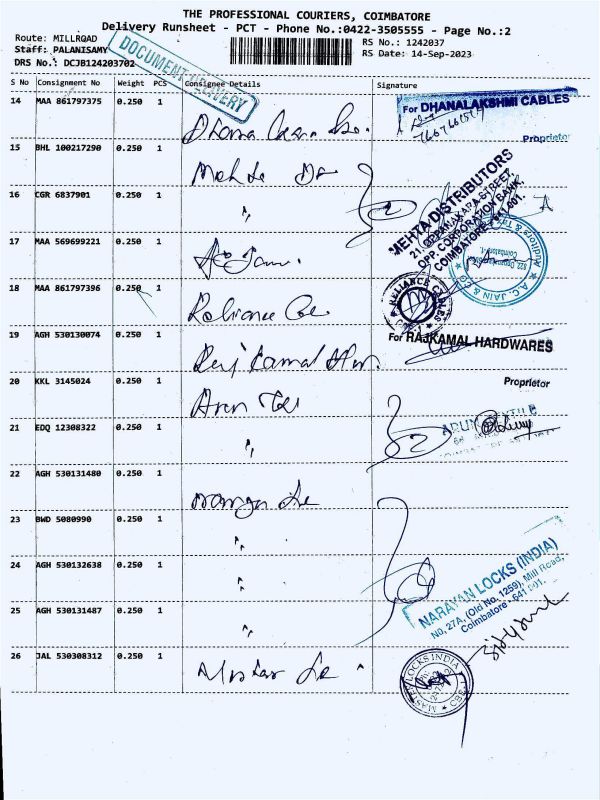 THE PROFESSIONAL COURIERS, COIMBATORE
Delivery Runsheet - PCT - Phone No.:0422-3505555 - Page No.:2
Route: MILLRQAD
RS No.: 1242037
Staff: PALANISAMY
RS Date: 14-Sep-2023
DRS No.: DCJB124203702
DOCUMENT DELIVERY
S No Consignment No Weight PCS Consignee Details Signature
14 MAA 861797375 0.250 1
For DHANALAKSHMI CABLES
Proprietor
15 BHL 100217290 0.250 1
MEHTA DISTRIBUTORS
OPP. CORPORATION BANK,
COIMBATORE - 641 001.
16 CGR 6837901 0.250 1 "
17 MAA 569699221 0.250 1
A.C. JAIN & CO
18 MAA 861797396 0.250 1 Reliance
19 AGH 530130074 0.250 1 Raj Kamal
For RAJKAMAL HARDWARES
Proprietor
20 KKL 3145024 0.250 1 Arun Tex
21 EDQ 12308322 0.250 1 "
22 AGH 530131480 0.250 1
23 BWD 5080990 0.250 1 "
24 AGH 530132638 0.250 1 "
25 AGH 530131487 0.250 1 "
NARAYAN LOCKS (INDIA)
No, 27A, (Old No. 1259), Mill Road,
Coimbatore - 641 001.
26 JAL 530308312 0.250 1
MASTER LOCKS INDIA